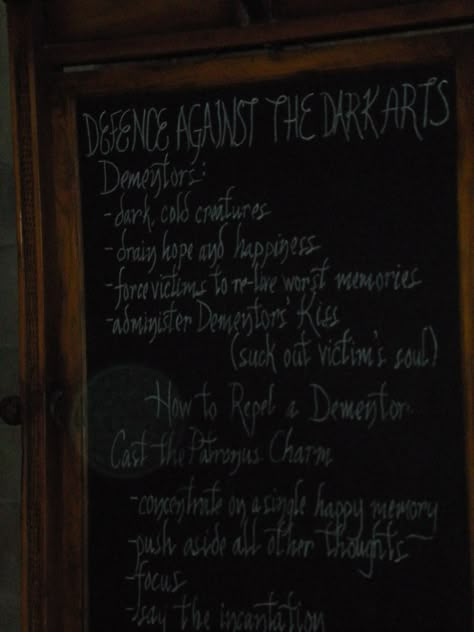 DEFENCE AGAINST THE DARK ARTS
Dementors:
-dark, cold creatures
-drain hope and happiness
-force victims to re-live worst memories
-administer Dementors' Kiss
(suck out victim's soul)
How to Repel a Dementor
Cast the Patronus Charm
-concentrate on a single happy memory
-push aside all other thoughts
-focus
-say the incantation